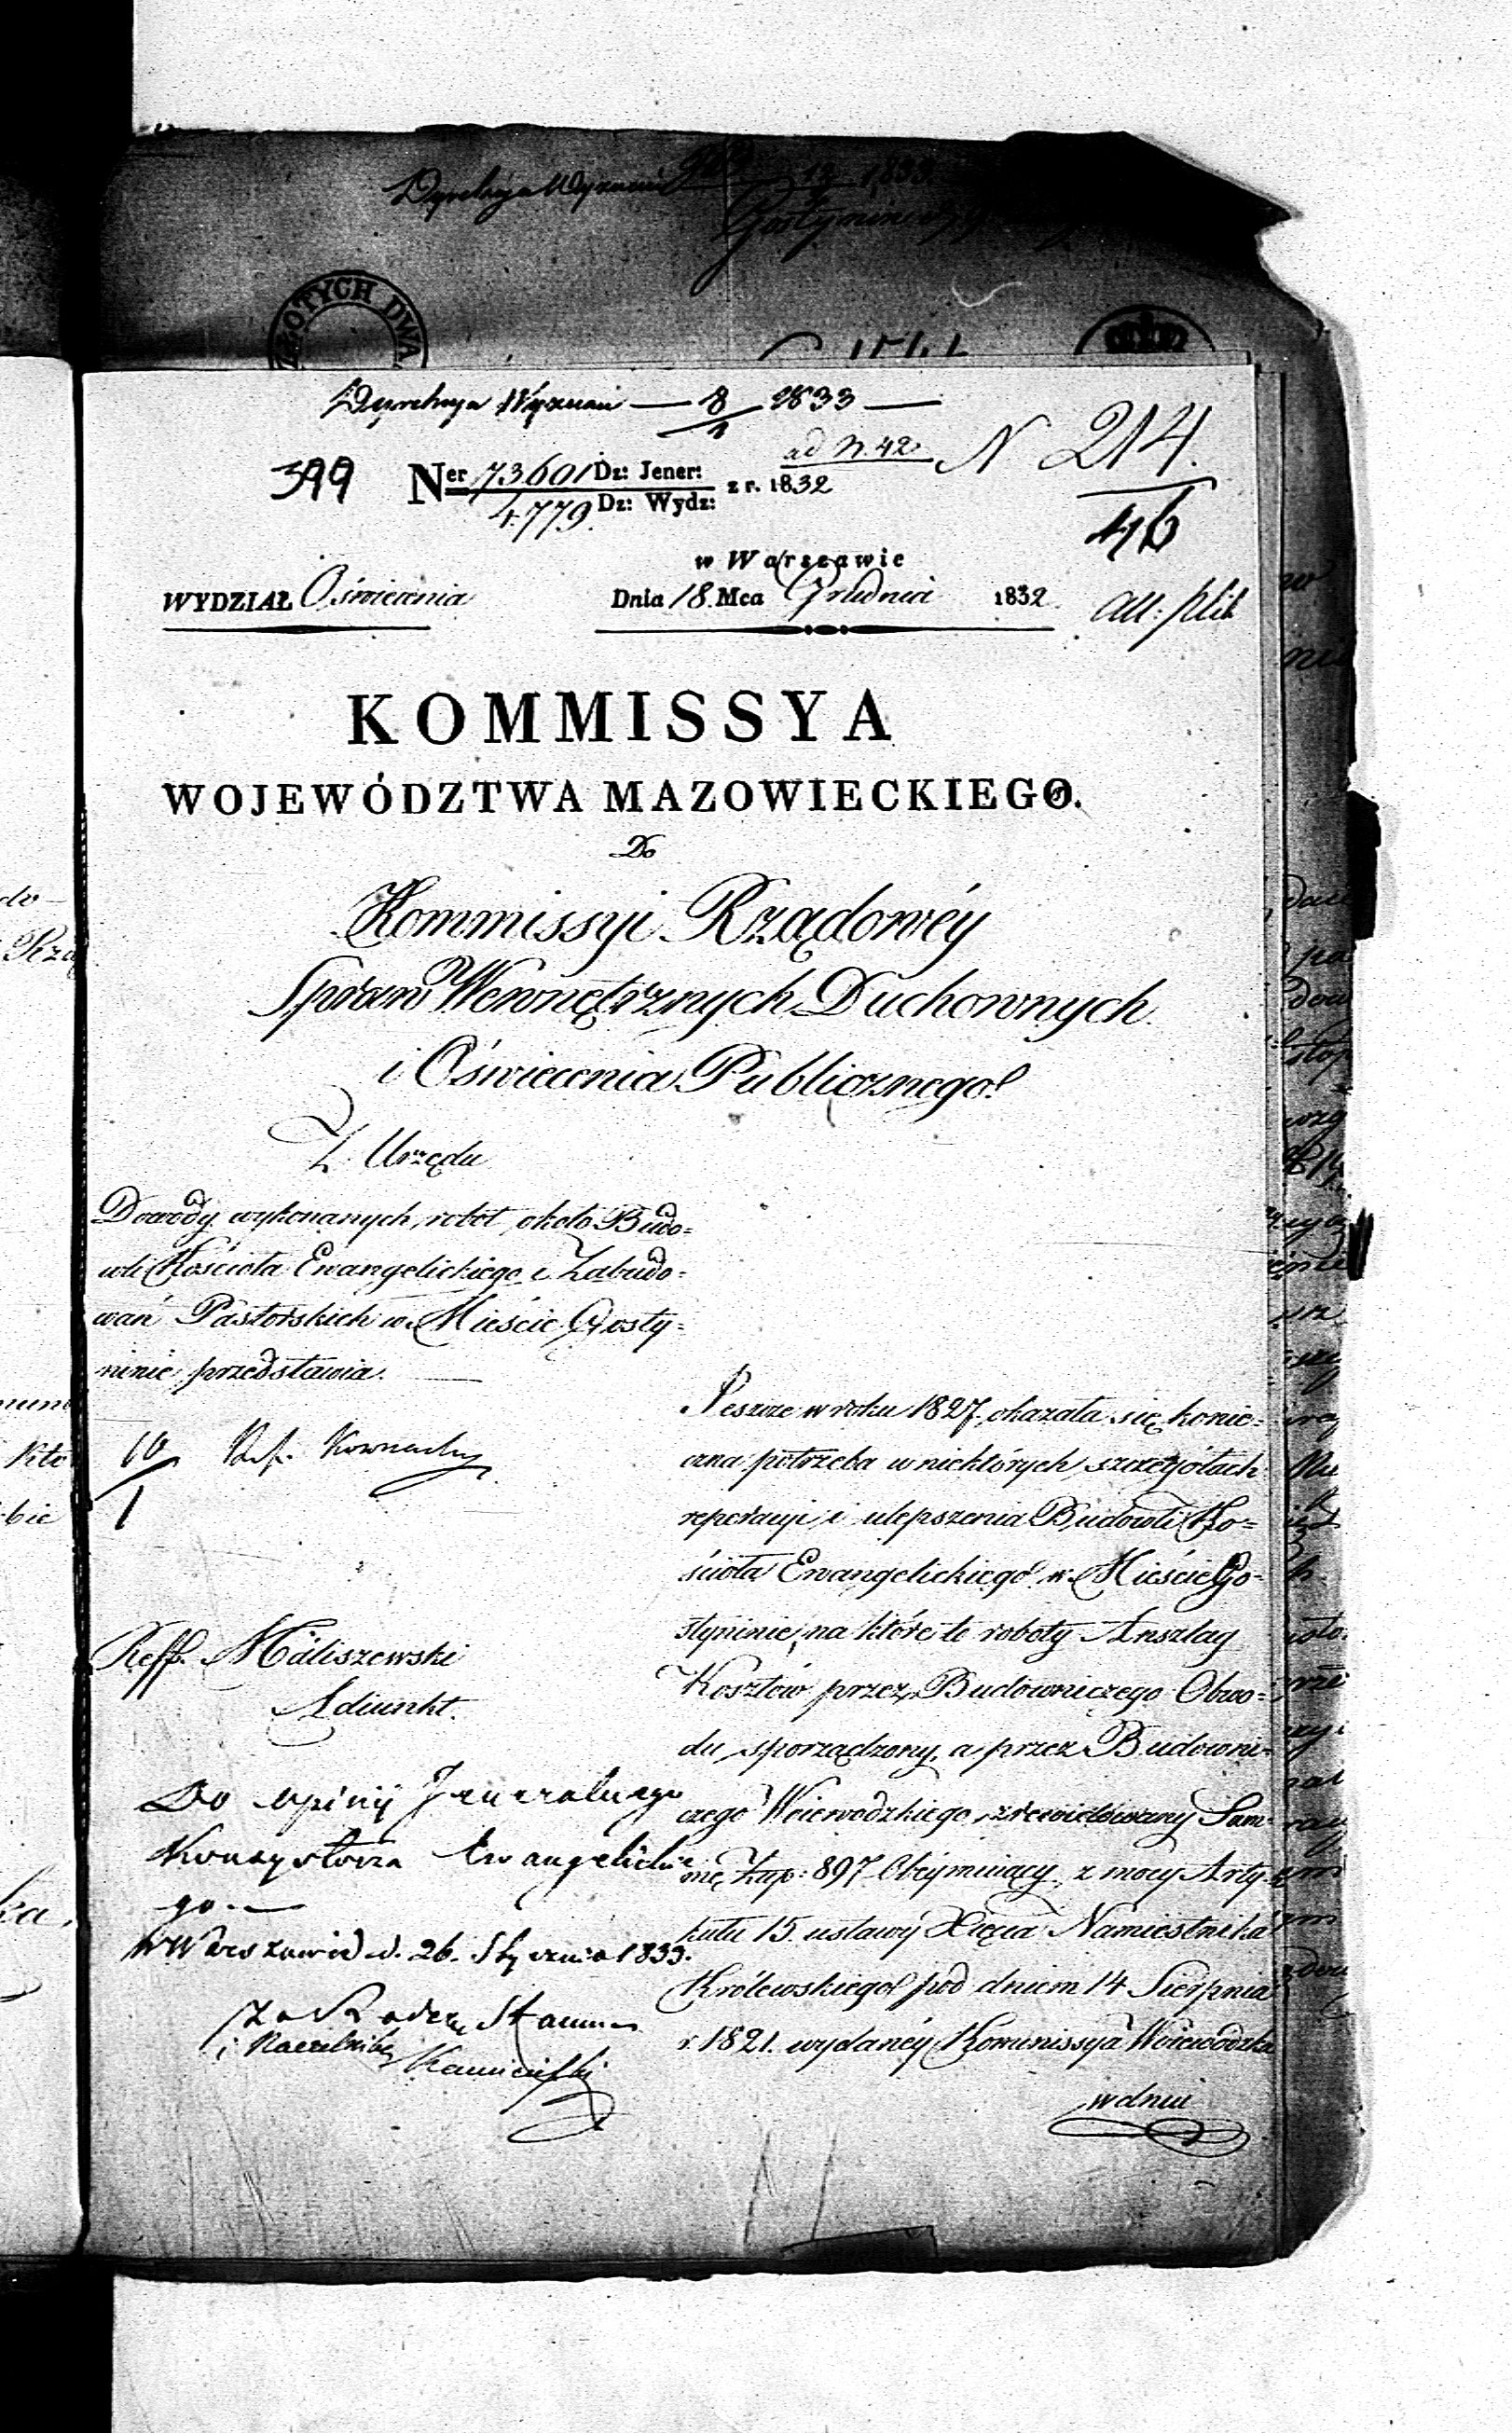 Dyrekcya Wyznań 12 1833.
Gostynin
ZŁOTYCH DWA
Dyrekcya Wyznań — 8/1 1833 —
ad N. 42 N 214.
399 Ner 73601 Dz: Jener: z r. 1832
4779. Dz: Wydz:
46
w Warszawie
WYDZIAŁ Oświecenia Dnia 18. Mca Grudnia 1832. all: plik
KOMMISSYA
WOJEWÓDZTWA MAZOWIECKIEGO.
Do
Kommissyi Rządowéy
Spraw Wewnętrznych Duchownych
i Oświecenia Publicznego
Z Urzędu
Dowody wykonanych robót około Budo=
wli Kościoła Ewangelickiego i Zabudo=
wań Pastorskich w Mieście Gosty=
ninie przedstawia.
10/1 Kownacki
Reff. Maliszewski
Adiunkt.
Do opinij Jeneralnego
Konsystorza Ewangelickie
go.—
w Warszawie d. 26. Stycznia 1833.
za Radcę Stanu
i Naczelnika
Kamieński
Jeszcze w roku 1827. okazała się konie=
czna potrzeba w niektórych szczegółach
reperacyi i ulepszenia Budowli Ko=
ścioła Ewangelickiego w Mieście Go=
styninie, na które to roboty Anszlag
Kosztów przez Budowniczego Obwo=
du sporządzony, a przez Budowni=
czego Woiewodzkiego zrewidowany Sum=
mę Złp: 897 obeymuiący, z mocy Arty=
kułu 15. ustawy Xięcia Namiestnika
Królewskiego pod dniem 14 Sierpnia
r. 1821. wydanéy Kommissya Woiewódzka
w dniu